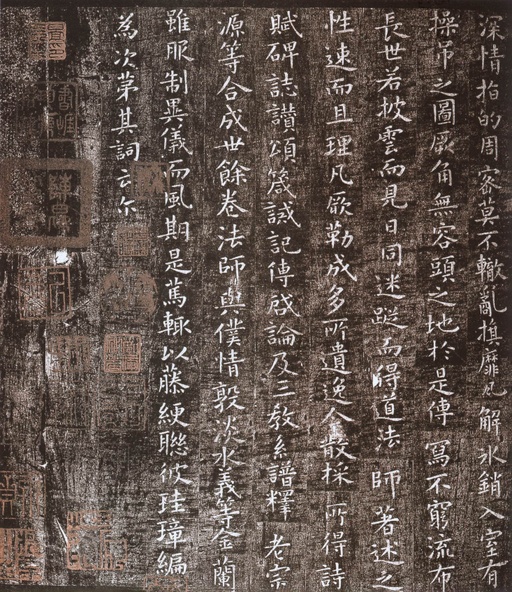 深情指的周密莫不轍亂旗靡瓦解冰銷入室有
操弔之圖厥角無容頭之地於是傳寫不窮流布
長世若披雲而見日同迷蹤而得道法師著述之
性速而且理凡厥勒成多所遺逸今散採所得詩
賦碑誌讚頌箴誡記傳啟論及三教系譜釋老宗
源等合成卅餘卷法師與僕情敦淡水義等金蘭
雖服制異儀而風期是篤輒以藤綆聯彼珪璋編
為次第其詞云尔